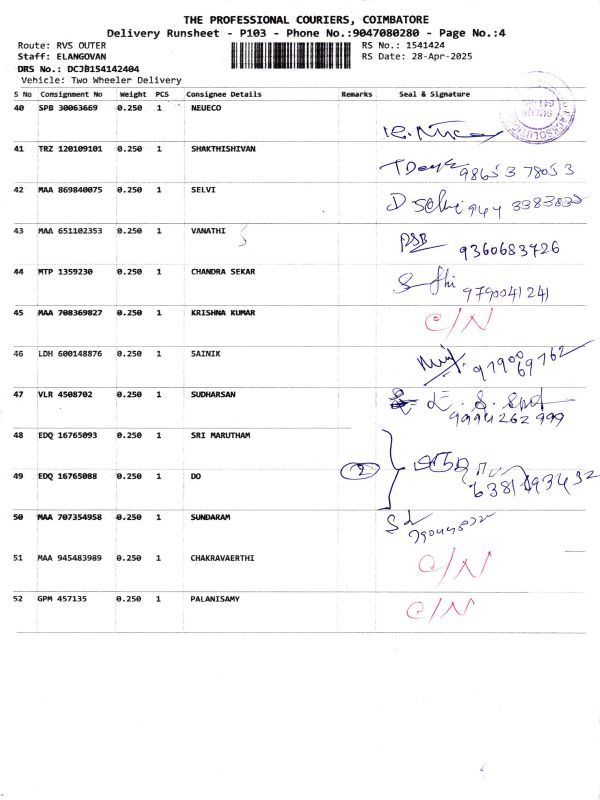 THE PROFESSIONAL COURIERS, COIMBATORE
Delivery Runsheet - P103 - Phone No.:9047080280 - Page No.:4
Route: RVS OUTER RS No.: 1541424
Staff: ELANGOVAN RS Date: 28-Apr-2025
DRS No.: DCJB154142404
Vehicle: Two Wheeler Delivery
S No Consignment No Weight PCS Consignee Details Remarks Seal & Signature
40 SPB 30063669 0.250 1 NEUECO
41 TRZ 120109101 0.250 1 SHAKTHISHIVAN
98653 78053
42 MAA 869840075 0.250 1 SELVI
D Selvi
43 MAA 651102353 0.250 1 VANATHI
9360683726
44 MTP 1359230 0.250 1 CHANDRA SEKAR
9790041241
45 MAA 708369827 0.250 1 KRISHNA KUMAR
C/N
46 LDH 600148876 0.250 1 SAINIK
97900 69762
47 VLR 4508702 0.250 1 SUDHARSAN
9994262999
48 EDQ 16765093 0.250 1 SRI MARUTHAM
49 EDQ 16765088 0.250 1 DO 2
50 MAA 707354958 0.250 1 SUNDARAM
51 MAA 945483989 0.250 1 CHAKRAVAERTHI
C/N
52 GPM 457135 0.250 1 PALANISAMY
C/N